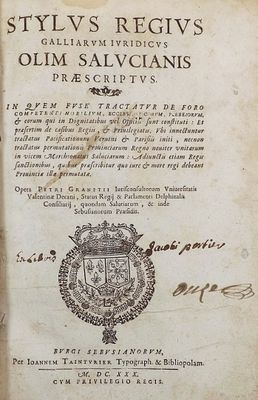 STYLVS REGIVS
GALLIARVM IVRIDICVS
OLIM SALVCIANIS
PRÆSCRIPTVS.
IN QVEM FVSE TRACTATVR DE FORO
COMPETENTI NOBILIVM, PLEBEIORVM,
& eorum qui in Dignitatibus vel Officijs sunt constituti: Et
præsertim de casibus Regiis, & Priuilegiatis. Vbi innectuntur
tractatus Pacificationum Veruini & Parisiis initi, necnon
tractatus permutationis Prouinciarum Regno nouiter vnitarum
in vicem Marchionatus Saluciarum: Adiunctis etiam Regiis
sanctionibus, quibus præscribitur quo iure & more regi debeant
Prouincia illa permutata.
Opera PETRI GRANETII Iurisconsultorum Vniuersitatis
Valentinæ Decani, Status Regij & Parlamenti Delphinalis
Consiliarij, quondam Saluciarum, & inde
Sebusianorum Præsidis.
Ex Libris Jacobi
BVRGI SEBVSIANORVM,
Per IOANNEM TAINTVRIER Typograph. & Bibliopolam.
M. DC. XXX.
CVM PRIVILEGIO REGIS.